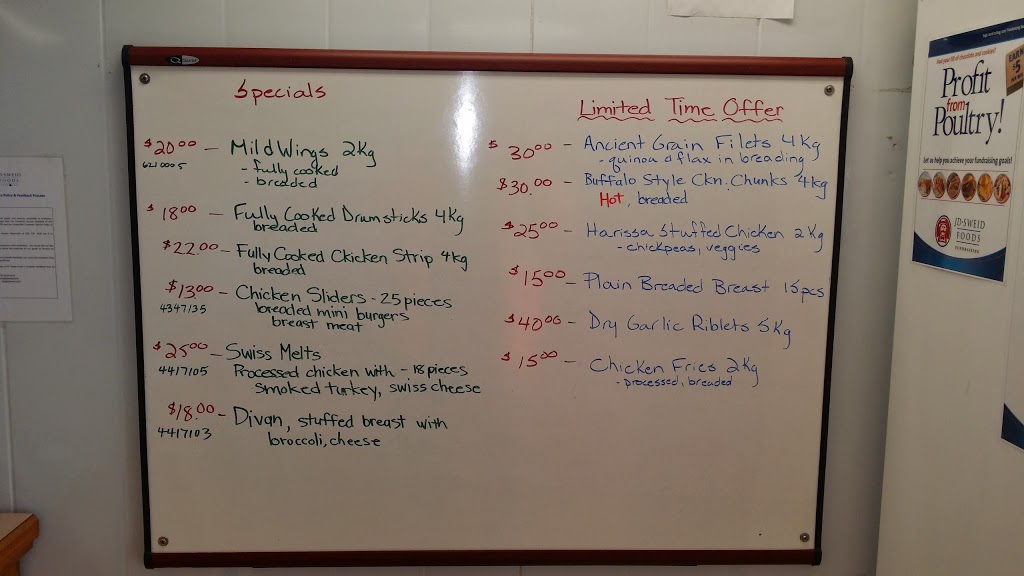 Specials
$20.00 - Mild Wings 2kg
6210005 - fully cooked
- breaded
$18.00 - Fully Cooked Drumsticks 4kg
breaded
$22.00 - Fully Cooked Chicken Strip 4kg
breaded
$13.00 - Chicken Sliders - 25 pieces
4347135 breaded mini burgers
breast meat
$25.00 - Swiss Melts
4417105 Processed chicken with - 18 pieces
smoked turkey, swiss cheese
$18.00 - Divan, stuffed breast with
4417103 broccoli, cheese
Limited Time Offer
$30.00 - Ancient Grain Filets 4kg
- quinoa & flax in breading
$30.00 - Buffalo Style Ckn. Chunks 4kg
Hot, breaded
$25.00 - Harissa Stuffed Chicken 2kg
- chickpeas, veggies
$15.00 - Plain Breaded Breast 15pcs
$40.00 - Dry Garlic Riblets 5kg
$15.00 - Chicken Fries 2kg
- processed, breaded
Profit
from
Poultry!
Let us help you achieve your fundraising goals!
JD SWEID
FOODS
FUNDRAISING
EARN
$5